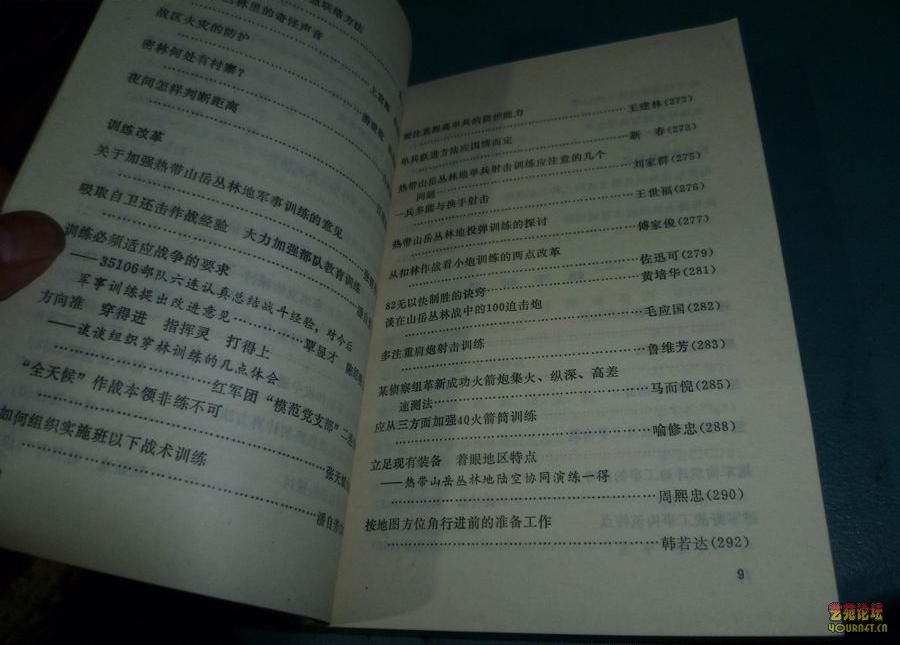 联络方法
丛林里的奇怪声音
战区火灾的防护
密林何处有村寨?
夜间怎样判断距离
训练改革
关于加强热带山岳丛林地军事训练的意见
吸取自卫还击作战经验 大力加强部队教育训练
训练必须适应战争的要求
——35106部队六连认真总结战斗经验,对今后
军事训练提出改进意见……覃显才
方向准 穿得进 指挥灵 打得上
——谈谈组织穿林训练的几点体会
……红军团“模范党支部”
“全天候”作战本领非练不可
……张天
如何组织实施班以下战术训练
……潘自
要注意提高单兵的防护能力
……王建林(272)
单兵跃进方法应因情而定
……靳 春(273)
热带山岳丛林地单兵射击训练应注意的几个
问题……刘家群(275)
一兵多能与换手射击
……王世福(276)
热带山岳丛林地投弹训练的探讨
……傅家俊(277)
从扣林作战看小炮训练的两点改革
……佐迅可(279)
82无以快制胜的诀窍……黄培华(281)
谈在山岳丛林战中的100迫击炮
……毛应国(282)
多注重肩炮射击训练
……鲁维芳(283)
某侦察组革新成功火箭炮集火、纵深、高差
速测法……马而倪(285)
应从三方面加强40火箭筒训练
……喻修忠(288)
立足现有装备 着眼地区特点
——热带山岳丛林地陆空协同演练一得
……周熙忠(290)
按地图方位角行进前的准备工作
……韩若达(292)
9
艺苑论坛
YOURNET.CN